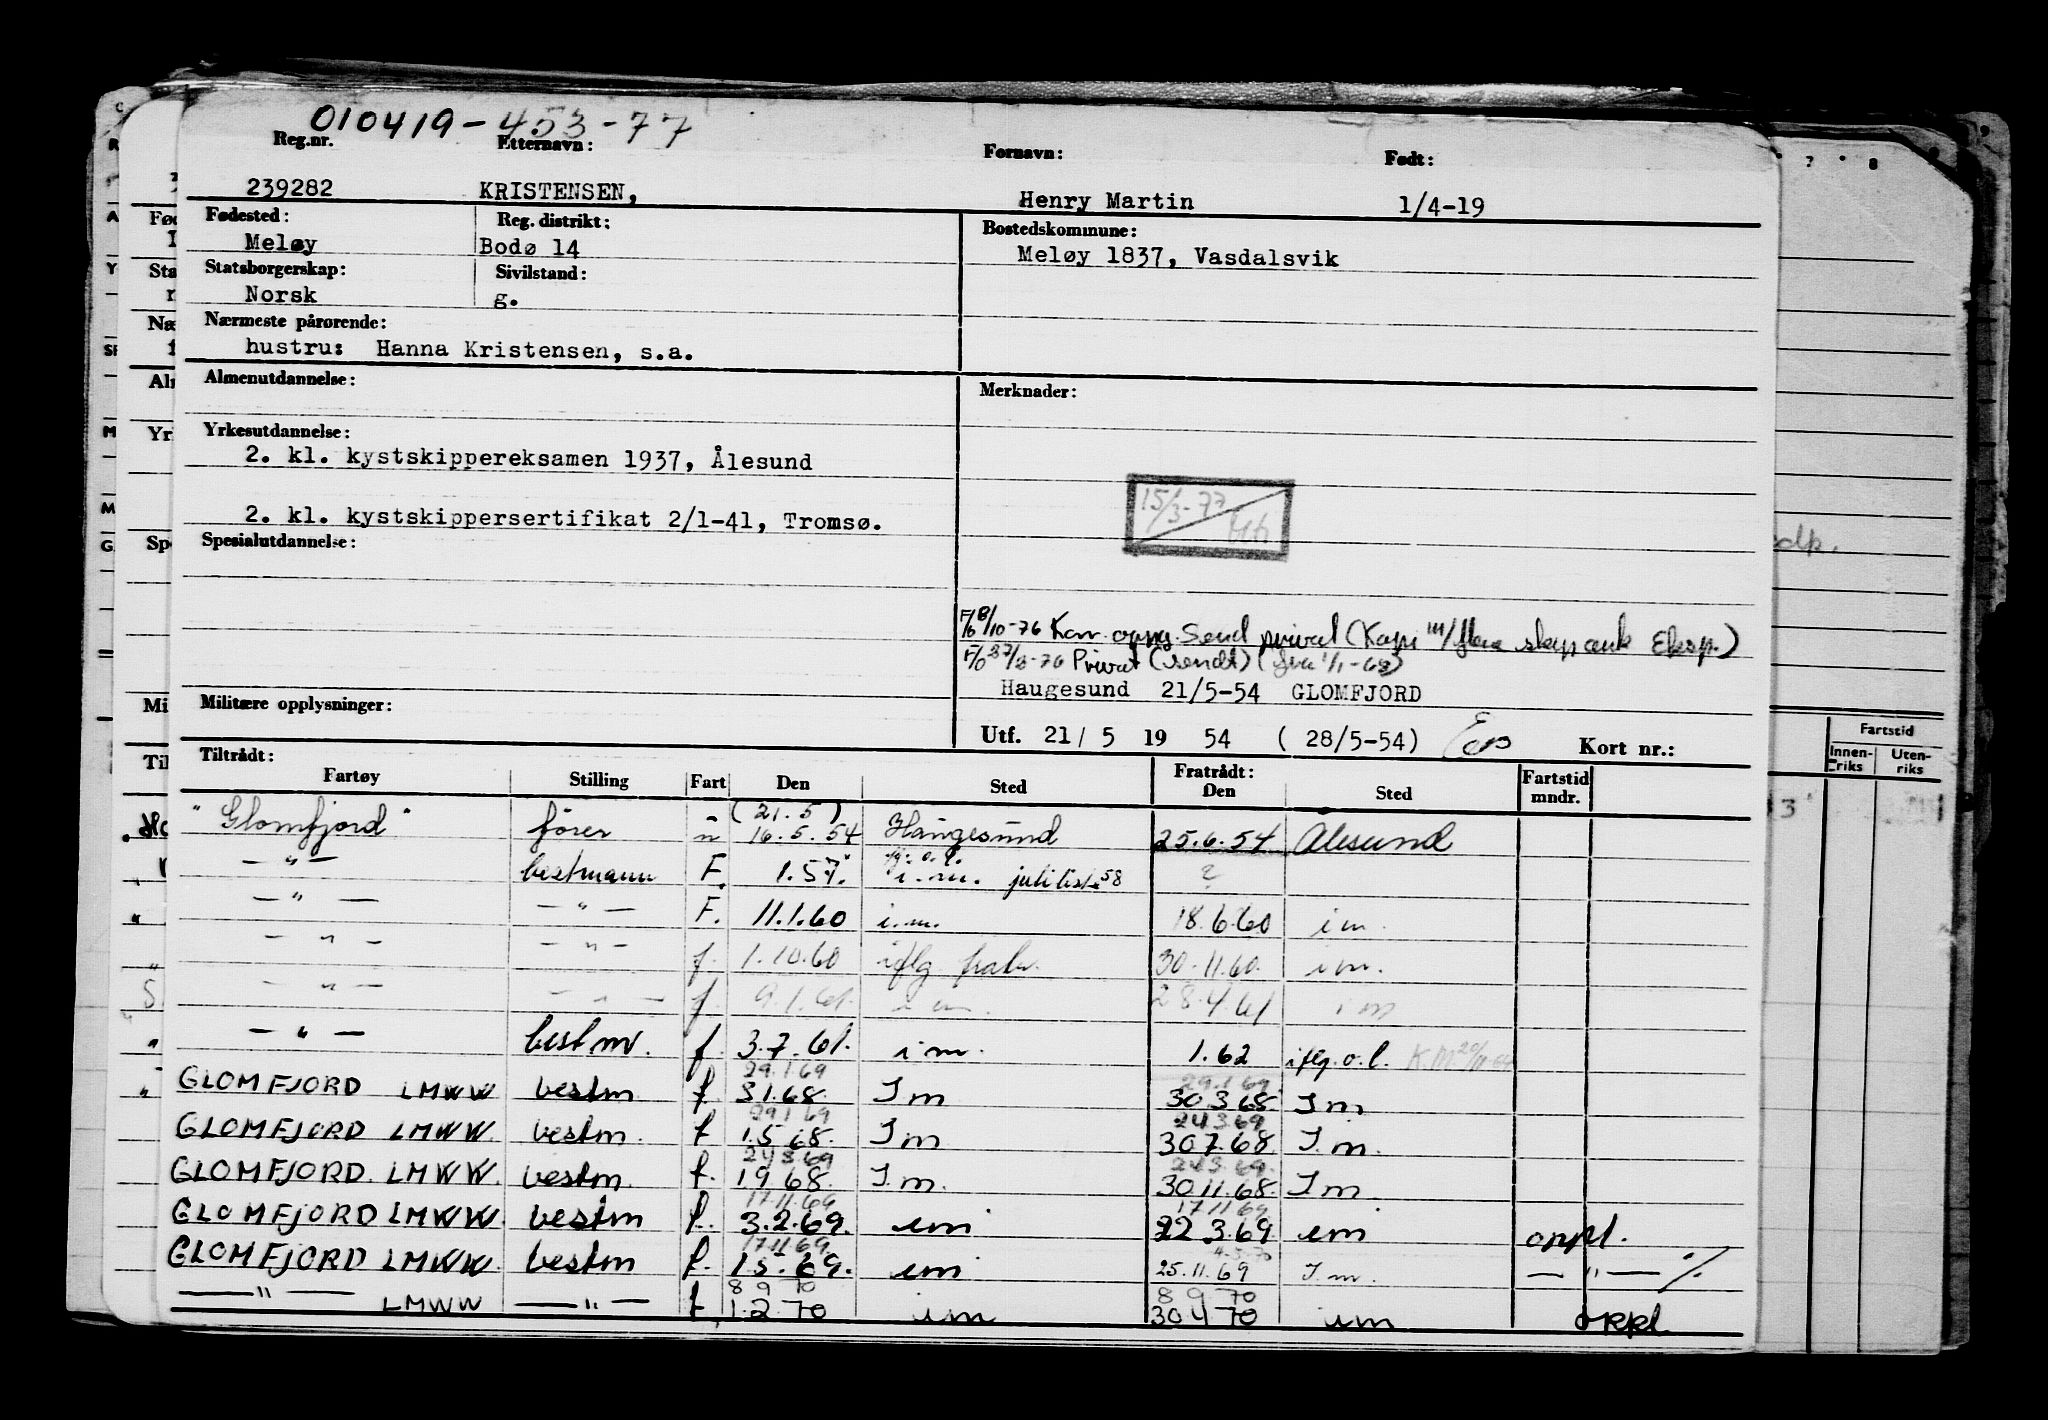 010419-453-77
Reg.nr. Etternavn: Fornavn: Født:
239282 KRISTENSEN, Henry Martin 1/4-19
Fødested: Reg. distrikt: Bostedskommune:
Meløy Bodø 14 Meløy 1837, Vasdalsvik
Statsborgerskap: Sivilstand:
Norsk g.
Nærmeste pårørende:
hustru: Hanna Kristensen, s.a.
Almenutdannelse: Merknader:
Yrkesutdannelse:
2. kl. kystskippereksamen 1937, Ålesund
15/3-77
2. kl. kystskippersertifikat 2/1-41, Tromsø.
Spesialutdannelse:
F/o 8/10-76 Kar. oppg. Send privat
Privat (sendt) (fra 1/1-68)
Haugesund 21/5-54 GLOMFJORD
Militære opplysninger:
Utf. 21/ 5 19 54 ( 28/5-54) Kort nr.:
Tiltrådt: Fratrådt: Fartstid
Fartøy Stilling Fart Den Sted Den Sted mndr.
(21.5)
"Glomfjord" fører n 16.5.54 Haugesund 25.6.54 Ålesund
— " — bestmann F. 1.57. i.m. juliliste 58 ?
— " — — " — F. 11.1.60 i.m. 18.6.60 i m.
— " — — " — f. 1.10.60 iflg frakr. 30.11.60. i m.
— " — — " — f. 9.1.61. i m. 28.4.61 i m
— " — bestm. f. 3.7.61. i m. 1.62 iflg. o.l.
29.1.69 29.1.69
GLOMFJORD LMWW bestm f. 3168. I m 30368 I m
29.1.69 24.3.69
GLOMFJORD LMWW. bestm. f 1.5 68. I m 307.68 I. m.
24.3.69 24.3.69.
GLOMFJORD. LMWW. bestm. f. 19 68. I m. 3011.68. I m.
17.11.69 17.11.69
GLOMFJORD LMWW bestm f. 3.2.69. im 22 3.69 im oppl.
17.11.69
GLOMFJORD LMWW. bestm f. 1.5.69. im 25.11.69 I. m. — " — ./.
8 9 70 8 9 70
— " — LMWW — " — f 1.2 70 im 30470 im oppl
Fartstid
Innen- Uten-
riks riks